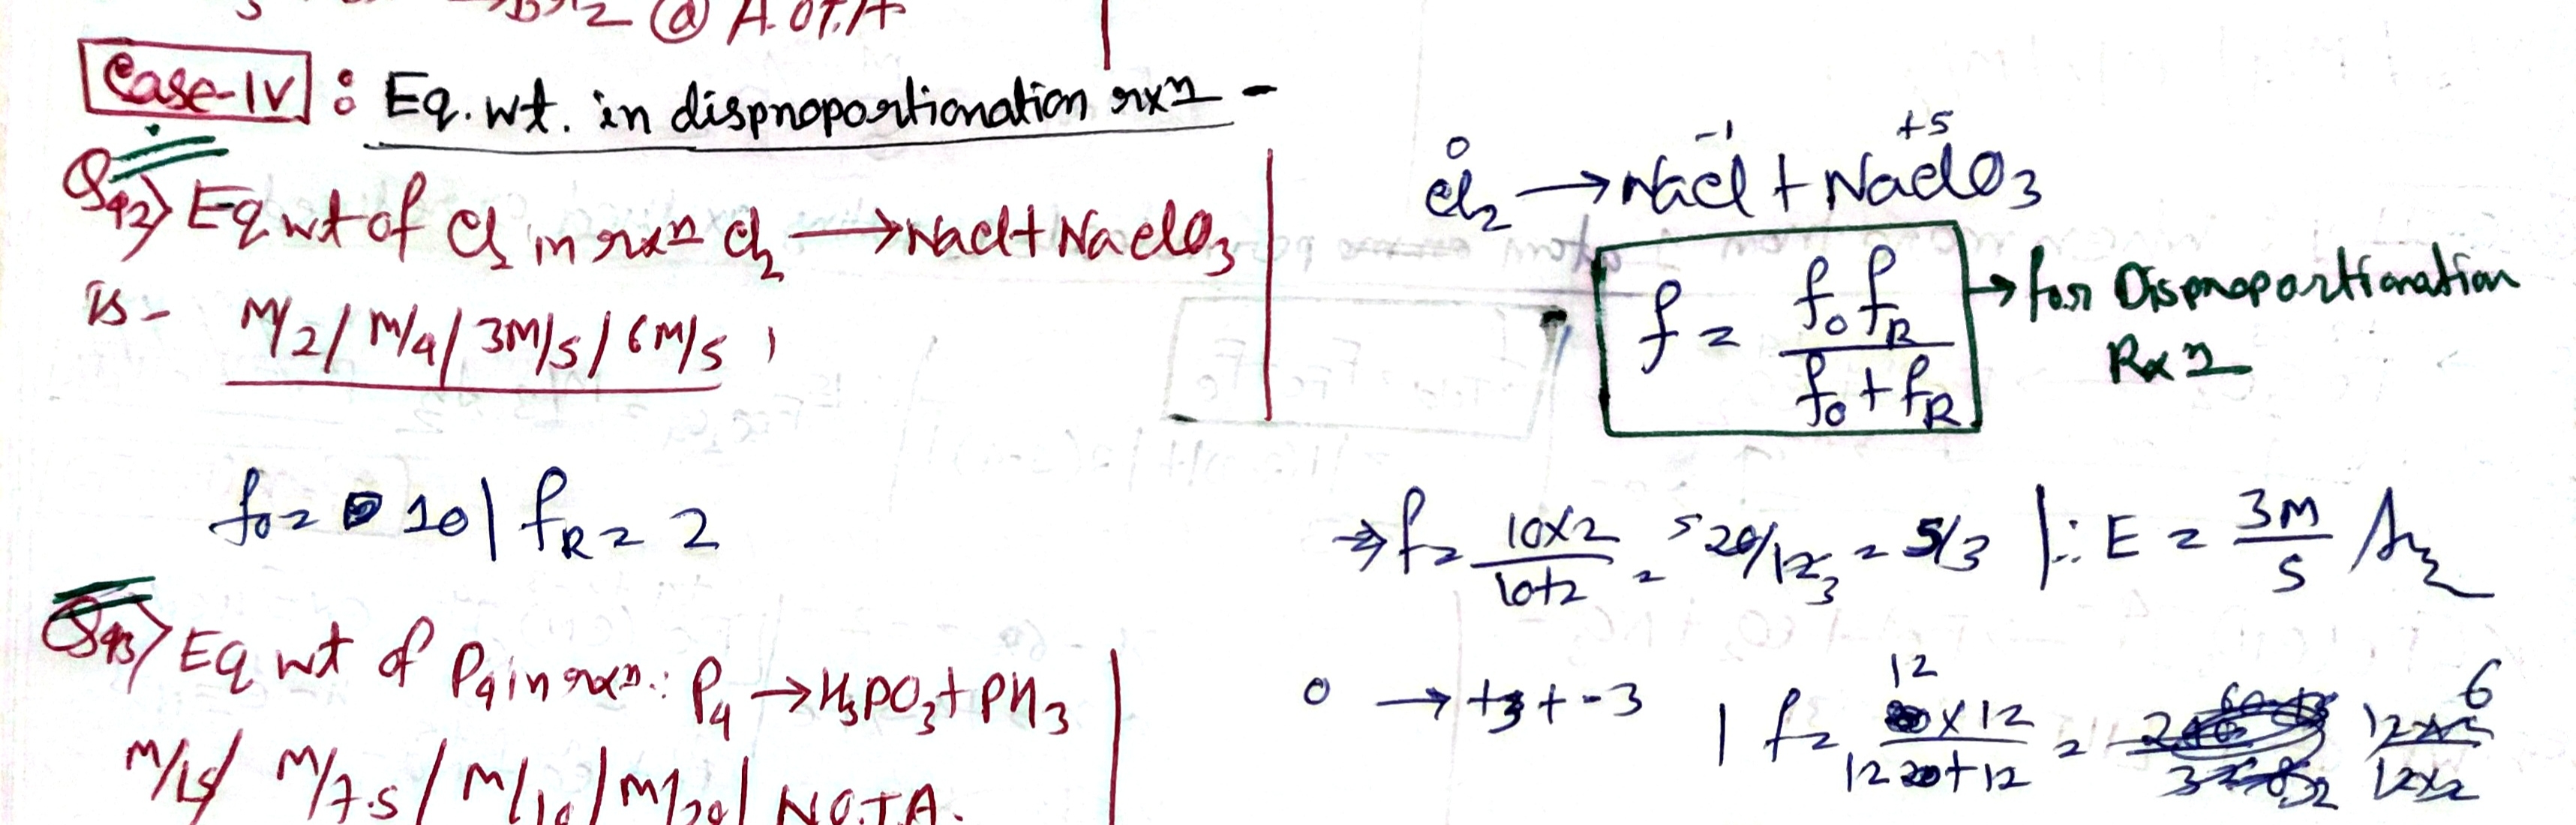 @ A.OT.A
Case-IV : Eq. wt. in dispnoportionation rxn -
Q42) Eq wt of Cl2 in rxn Cl2 → NaCl + NaClO3
is - M/2 / M/4 / 3M/5 / 6M/5
0 -1 +5
Cl2 → NaCl + NaClO3
f = fO fR / fO + fR → for Dispropotionation
Rxn
fO = 10 | fR = 2
⇒ f = 10x2 / 10+2 = 20/12 = 5/3 | ∴ E = 3M/5 Ans
Q43) Eq wt of P4 in rxn: P4 → H3PO3 + PH3
M/15 / M/7.5 / M/10 / M/20 / N.O.T.A.
0 → +3 + -3 | f = 12 x 12 / 12 + 12 = 6